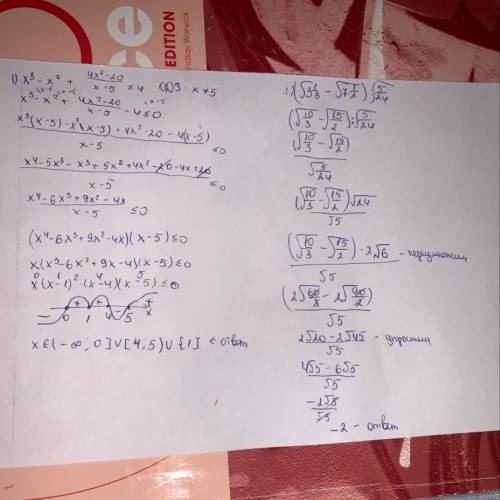 ce
EDITION
Lindsay Warwick
1) x³ - x² + (4x² - 20)/(x - 5) ≤ 4 ОДЗ: x ≠ 5
x³ - x² + (4x² - 20)/(x - 5) - 4 ≤ 0
(x³(x - 5) - x²(x - 5) + 4x² - 20 - 4(x - 5))/(x - 5) ≤ 0
(x⁴ - 5x³ - x³ + 5x² + 4x² - 20 - 4x + 20)/(x - 5) ≤ 0
(x⁴ - 6x³ + 9x² - 4x)/(x - 5) ≤ 0
(x⁴ - 6x³ + 9x² - 4x)(x - 5) ≤ 0
x(x³ - 6x² + 9x - 4)(x - 5) ≤ 0
0 1 4 5
x(x - 1)² · (x - 4)(x - 5) ≤ 0
- + + - +
0 1 4 5 x
x ∈ (-∞, 0] ∪ [4, 5) ∪ {1} ответ
(√(10/3) - √(15/2)) : √(5/24)
(√(10/3) - √(15/2))/√(5/24)
(√(10/3) - √(15/2))√24/√5
(√(10/3) - √(15/2)) · 2√6/√5 - перемножаем
(2√(60/3) - 2√(90/2))/√5
(2√20 - 2√45)/√5 - упростим
(4√5 - 6√5)/√5
-2√5/√5
-2 - ответ